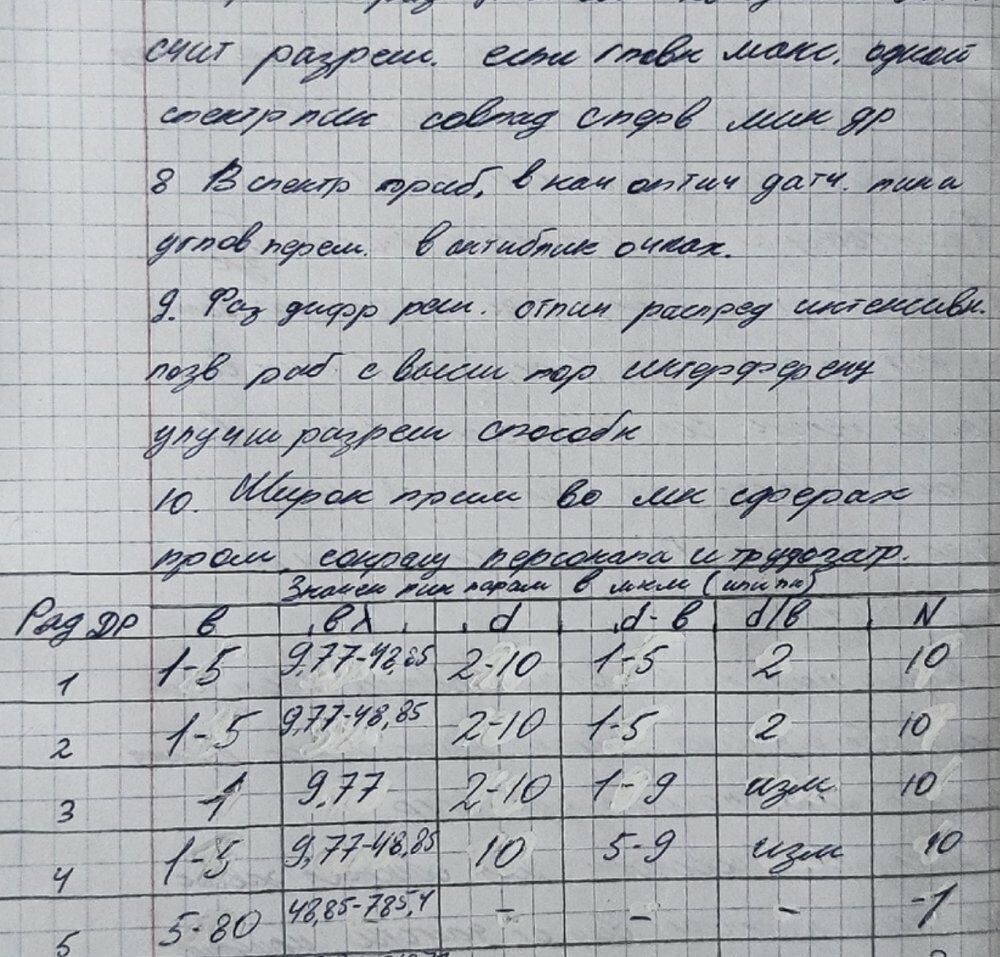 счит разреш. если главн макс. одной
спектр лин совпад с перв мин др
8 В спектр приб, в кач оптич датч. лин и
углов перем. в антиблик очках.
9. Фаз дифр реш. отлич распред интенсивн.
позв раб с высш пор интерференц
улучш разреш способн
10. Широк прим во мн сферах
пром, сокращ персонала и трудозатр.
Значен лин парам в мкм (или
Ряд ДР b bλ d d-b d/b N
1 1-5 9,77-48,85 2-10 1-5 2 10
2 1-5 9,77-48,85 2-10 1-5 2 10
3 1 9,77 2-10 1-9 изм 10
4 1-5 9,77-48,85 10 5-9 изм 10
5 5-80 48,85-785,4 - - - 1